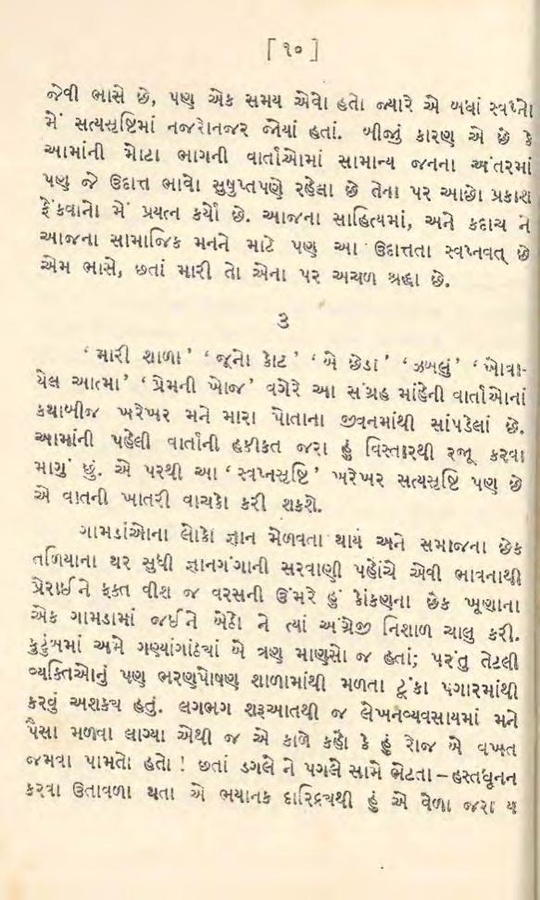 [ ૧૦ ]
જેવી ભાસે છે, પણ એક સમય એવો હતો જ્યારે એ બધાં સ્વપ્નો
મેં સત્યસૃષ્ટિમાં નજરોનજર જોયાં હતાં. બીજું કારણ એ છે કે
આમાંની મોટા ભાગની વાર્તાઓમાં સામાન્ય જનના અંતરમાં
પણ જે ઉદાત્ત ભાવો સુષુપ્તપણે રહેલા છે તેના પર આછો પ્રકાશ
ફેંકવાનો મેં પ્રયત્ન કર્યો છે. આજના સાહિત્યમાં, અને કદાચ ને
આજના સામાજિક મનને માટે પણ આ ઉદાત્તતા સ્વપ્નવત્ છે
એમ ભાસે, છતાં મારી તો એના પર અચળ શ્રદ્ધા છે.
૩
‘મારી શાળા’ ‘જૂનો કોટ’ ‘એ છેડા’ ‘ઝબલું’ ‘ખોવા-
યેલ આત્મા’ ‘પ્રેમની ખોજ’ વગેરે આ સંગ્રહ માંહેની વાર્તાઓનાં
કથાબીજ ખરેખર મને મારા પોતાના જીવનમાંથી સાંપડેલાં છે.
આમાંની પહેલી વાર્તાની હકીકત જરા હું વિસ્તારથી રજૂ કરવા
માગું છું. એ પરથી આ ‘સ્વપ્નસૃષ્ટિ’ ખરેખર સત્યસૃષ્ટિ પણ છે
એ વાતની ખાતરી વાચકો કરી શકશે.
ગામડાંઓના લોકો જ્ઞાન મેળવતા થાય અને સમાજના છેક
તળિયાના થર સુધી જ્ઞાનગંગાની સરવાણી પહોંચે એવી ભાવનાથી
પ્રેરાઈને ફક્ત વીશ જ વરસની ઉંમરે હું કોંકણના છેક ખૂણાના
એક ગામડામાં જઈને બેઠો ને ત્યાં અંગ્રેજી નિશાળ ચાલુ કરી.
કુટુંબમાં અમે ગણ્યાંગાંઠ્યાં બે ત્રણ માણસો જ હતાં; પરંતુ તેટલી
વ્યક્તિઓનું પણ ભરણપોષણ શાળામાંથી મળતા ટૂંકા પગારમાંથી
કરવું અશક્ય હતું. લગભગ શરૂઆતથી જ લેખનવ્યવસાયમાં મને
પૈસા મળવા લાગ્યા એથી જ એ કાળે કહો કે હું રોજ બે વખત
જમવા પામતો હતો ! છતાં ડગલે ને પગલે સામે ભેટતા – હસ્તધૂનન
કરવા ઉતાવળા થતા એ ભયાનક દારિદ્ર્યથી હું એ વેળા જરા ય